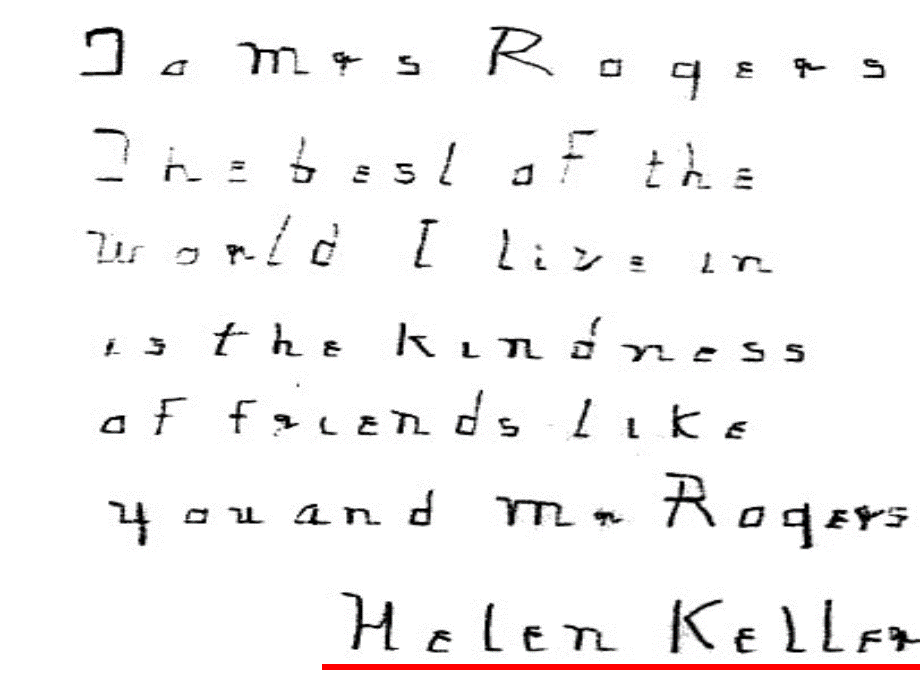 To Mrs Rogers
The best of the
world I live in
is the kindness
of friends like
you and Mr Rogers
Helen Keller